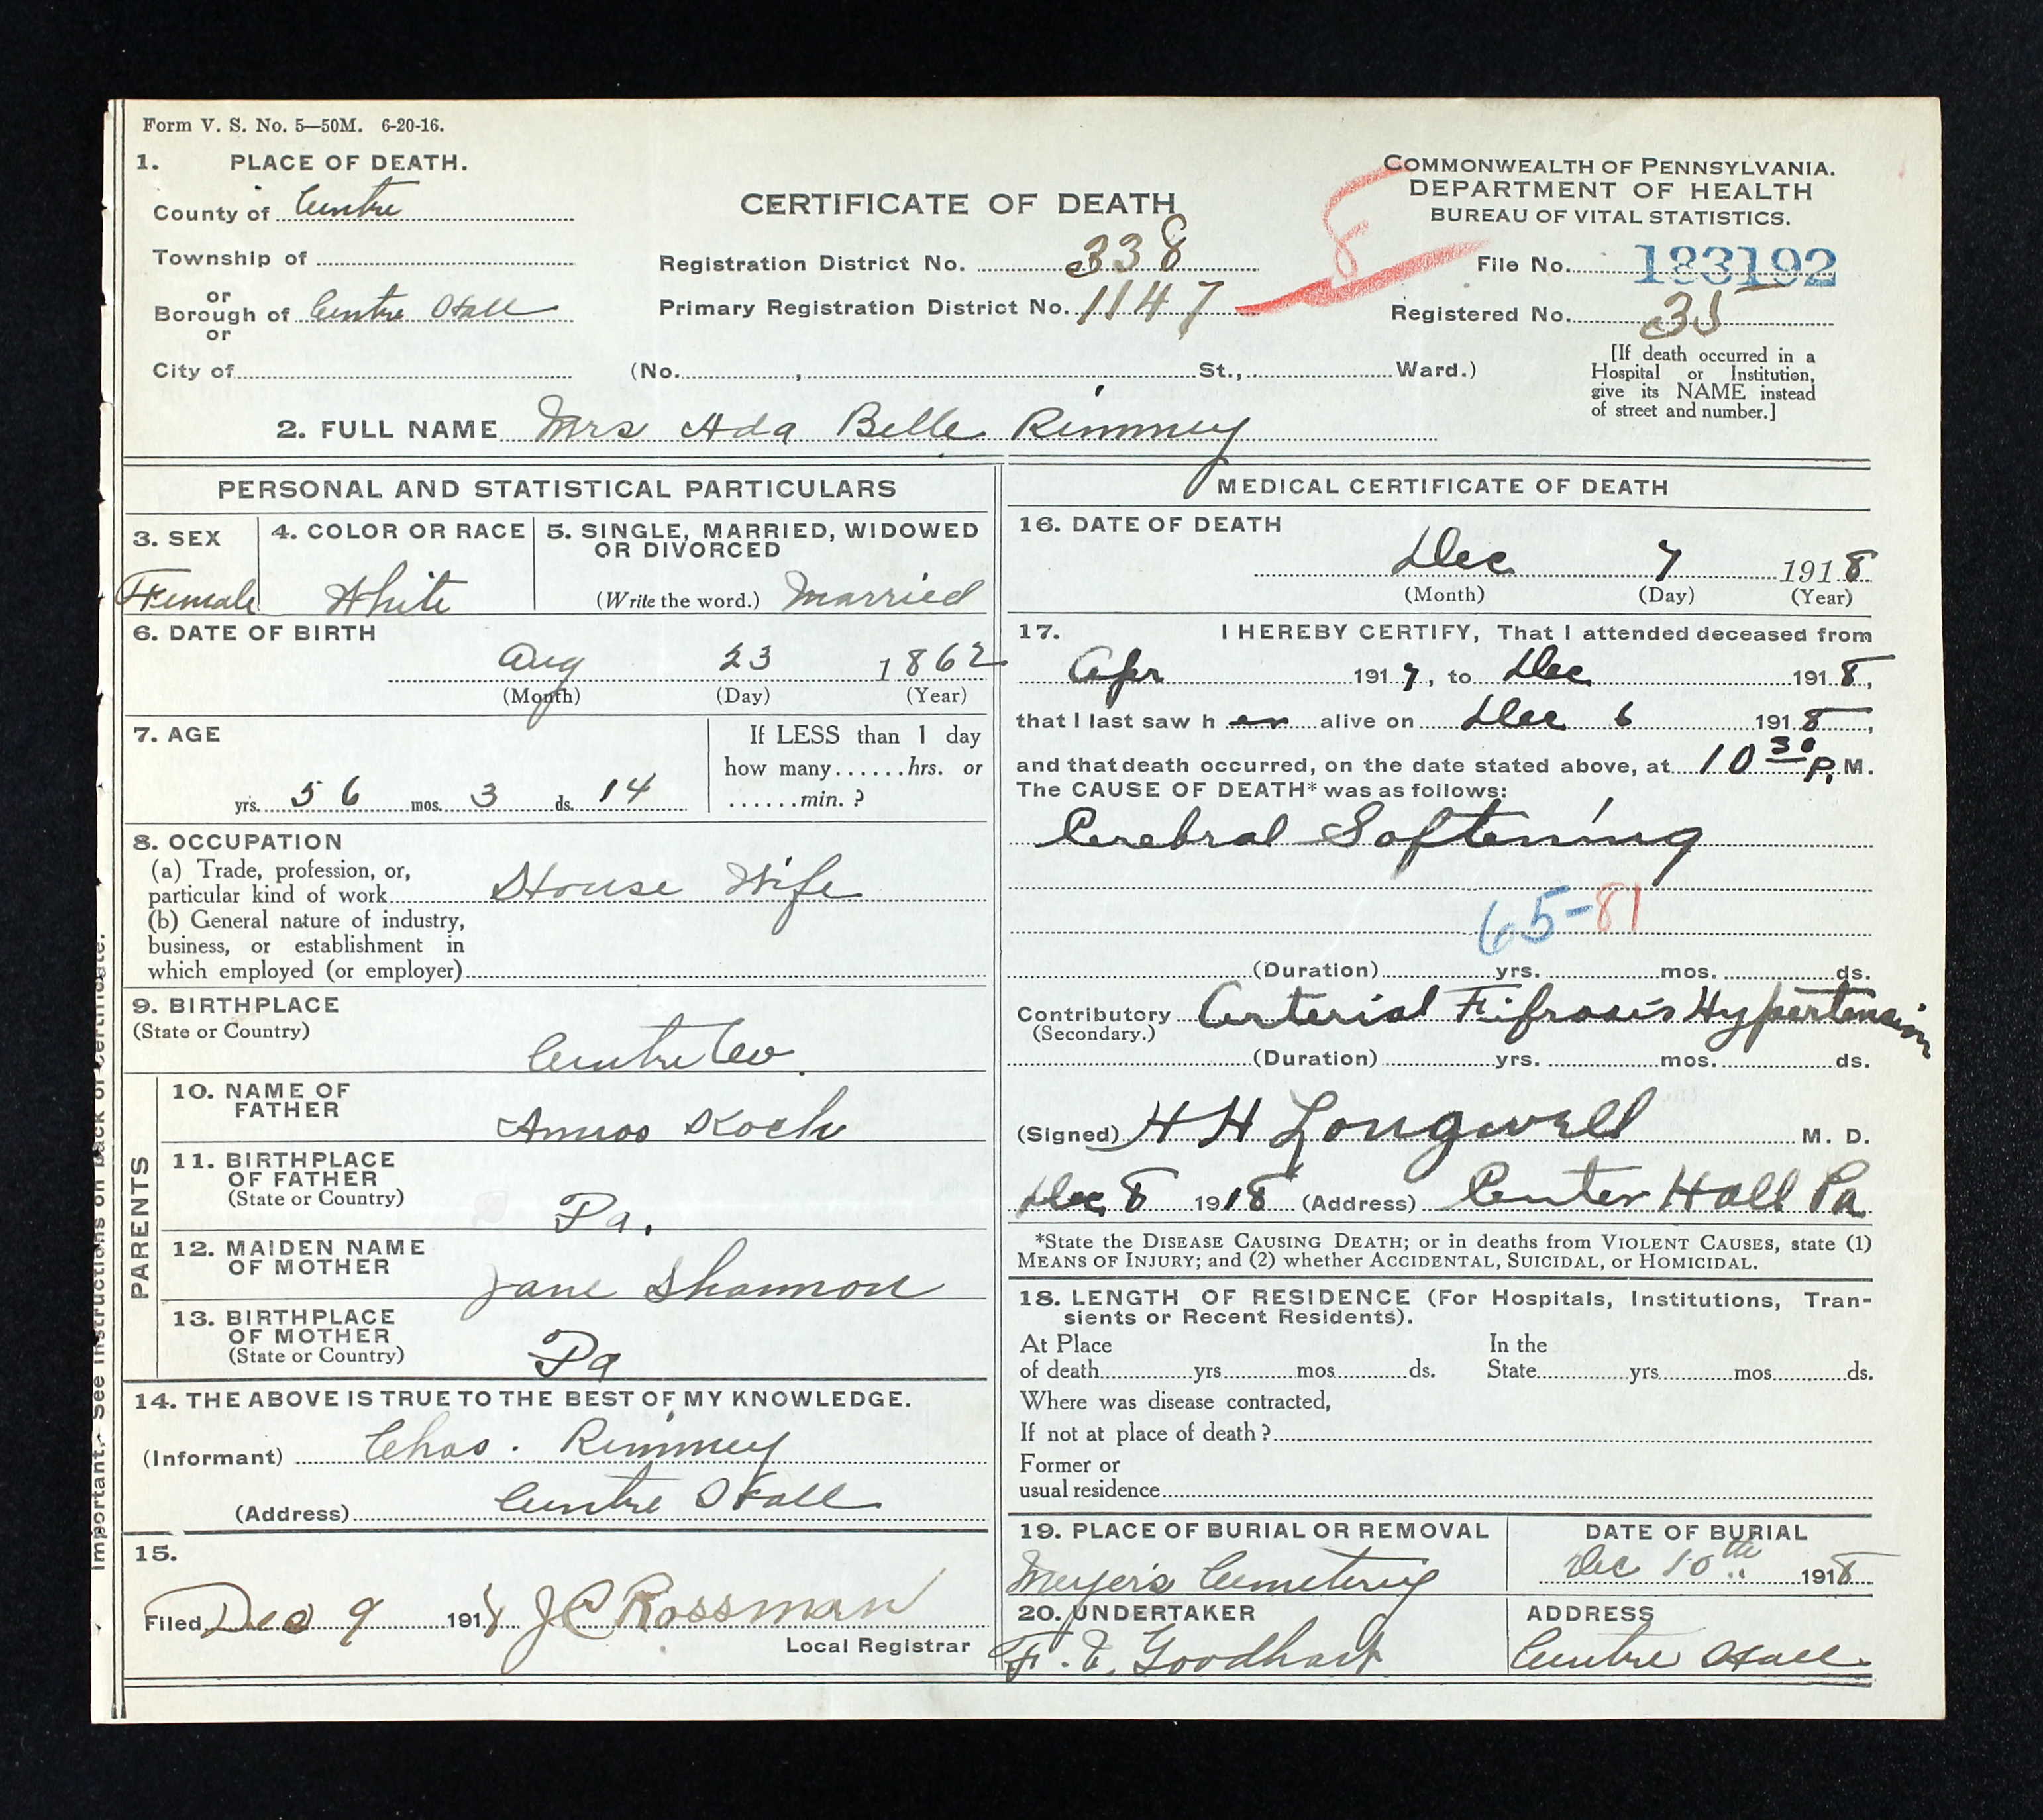 Form V. S. No. 5—50M. 6-20-16.
1. PLACE OF DEATH.
County of Centre
Township of
or
Borough of Centre Hall
or
City of
CERTIFICATE OF DEATH
Registration District No. 338
Primary Registration District No. 1147
(No. , St., Ward.)
8
COMMONWEALTH OF PENNSYLVANIA.
DEPARTMENT OF HEALTH
BUREAU OF VITAL STATISTICS.
File No. 183192
Registered No. 35
[If death occurred in a
Hospital or Institution,
give its NAME instead
of street and number.]
2. FULL NAME Mrs Ada Belle Rimmey
PERSONAL AND STATISTICAL PARTICULARS
3. SEX
Female
4. COLOR OR RACE
White
5. SINGLE, MARRIED, WIDOWED
OR DIVORCED
(Write the word.) Married
6. DATE OF BIRTH
Aug 23 1862
(Month) (Day) (Year)
7. AGE
yrs. 56 mos. 3 ds. 14
If LESS than 1 day
how many......hrs. or
......min. ?
8. OCCUPATION
(a) Trade, profession, or,
particular kind of work House Wife
(b) General nature of industry,
business, or establishment in
which employed (or employer)
9. BIRTHPLACE
(State or Country)
Centre Co.
PARENTS
10. NAME OF
FATHER
Amos Koch
11. BIRTHPLACE
OF FATHER
(State or Country)
Pa.
12. MAIDEN NAME
OF MOTHER
Jane Shannon
13. BIRTHPLACE
OF MOTHER
(State or Country)
Pa
14. THE ABOVE IS TRUE TO THE BEST OF MY KNOWLEDGE.
(Informant) Chas. Rimmey
(Address) Centre Hall
15.
Filed Dec 9 1918 J C Rossman
Local Registrar
MEDICAL CERTIFICATE OF DEATH
16. DATE OF DEATH
Dec 7 1918
(Month) (Day) (Year)
17. I HEREBY CERTIFY, That I attended deceased from
Apr 1917, to Dec 1918,
that I last saw her alive on Dec 6 1918,
and that death occurred, on the date stated above, at 10 30 P. M.
The CAUSE OF DEATH* was as follows:
Cerebral Softening
65-81
(Duration) yrs. mos. ds.
Contributory Arterial Fifrosis Hypertension
(Secondary.)
(Duration) yrs. mos. ds.
(Signed) H H Longwell M. D.
Dec 8 1918 (Address) Center Hall Pa
*State the DISEASE CAUSING DEATH; or in deaths from VIOLENT CAUSES, state (1)
MEANS OF INJURY; and (2) whether ACCIDENTAL, SUICIDAL, or HOMICIDAL.
18. LENGTH OF RESIDENCE (For Hospitals, Institutions, Tran-
sients or Recent Residents).
At Place
of death yrs. mos. ds.
In the
State yrs. mos. ds.
Where was disease contracted,
If not at place of death ?
Former or
usual residence
19. PLACE OF BURIAL OR REMOVAL
Meyer's Cemetery
DATE OF BURIAL
Dec 10th 1918
20. UNDERTAKER
F. E. Goodhart
ADDRESS
Centre Hall
Important.- See instructions on back of certificate.